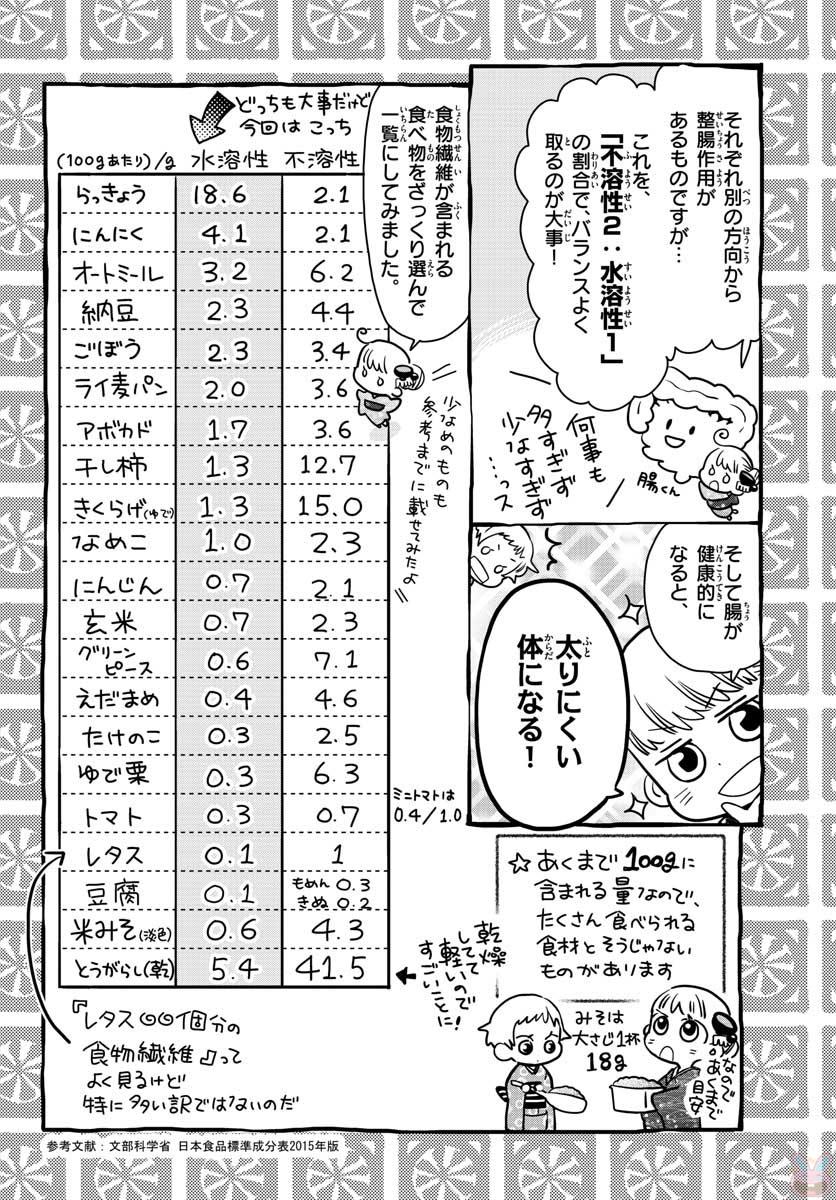 それぞれ別の方向から
整腸作用が
あるものですが…
これを、
「不溶性2:水溶性1」
の割合で、バランスよく
取るのが大事！
何事も
多すぎず
少なすぎず
…っス
腸くん
そして腸が
健康的に
なると、
太りにくい
体になる！
食物繊維が含まれる
食べ物をざっくり選んで
一覧にしてみました。
少なめのものも
参考までに載せてみたよ
どっちも大事だけど
今回は こっち
(100gあたり)/g 水溶性 不溶性
らっきょう 18.6 2.1
にんにく 4.1 2.1
オートミール 3.2 6.2
納豆 2.3 4.4
ごぼう 2.3 3.4
ライ麦パン 2.0 3.6
アボカド 1.7 3.6
干し柿 1.3 12.7
きくらげ(ゆで) 1.3 15.0
なめこ 1.0 2.3
にんじん 0.7 2.1
玄米 0.7 2.3
グリーン
ピース 0.6 7.1
えだまめ 0.4 4.6
たけのこ 0.3 2.5
ゆで栗 0.3 6.3
トマト 0.3 0.7
ミニトマトは
0.4/1.0
レタス 0.1 1
豆腐 0.1 もめん 0.3
きぬ 0.2
米みそ(淡色) 0.6 4.3
とうがらし(乾) 5.4 41.5
乾燥
してて
軽いので
すごいことに！
『レタス○○個分の
食物繊維』って
よく見るけど
特に多い訳ではないのだ
☆あくまで100gに
含まれる量なので、
たくさん食べられる
食材とそうじゃない
ものがあります
みそは
大さじ1杯
18g
なので
あくまで
目安
参考文献：文部科学省 日本食品標準成分表2015年版